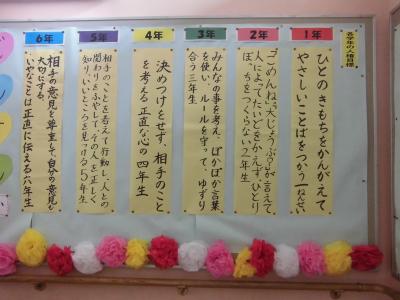 各学年の人権目標
1年
ひとのきもちをかんがえて
やさしいことばをつかう一ねんせい
2年
「ごめんね」「大じょうぶ」が言えて
人によってたいどをかえず、ひとり
ぼっちをつくらない2年生
3年
みんなの事を考え、ぽかぽか言葉
を使い、ルールを守って、ゆずり
合う三年生
4年
決めつけをせず、相手のこと
を考える正直な心の四年生
5年
相手のことを考えて行動し、人との
関わりをふやしてその人を正しく
知り、いいところを見つける5年生
6年
相手の意見を尊重して、自分の意見も
大切にする。
いやなことは正直に伝える六年生